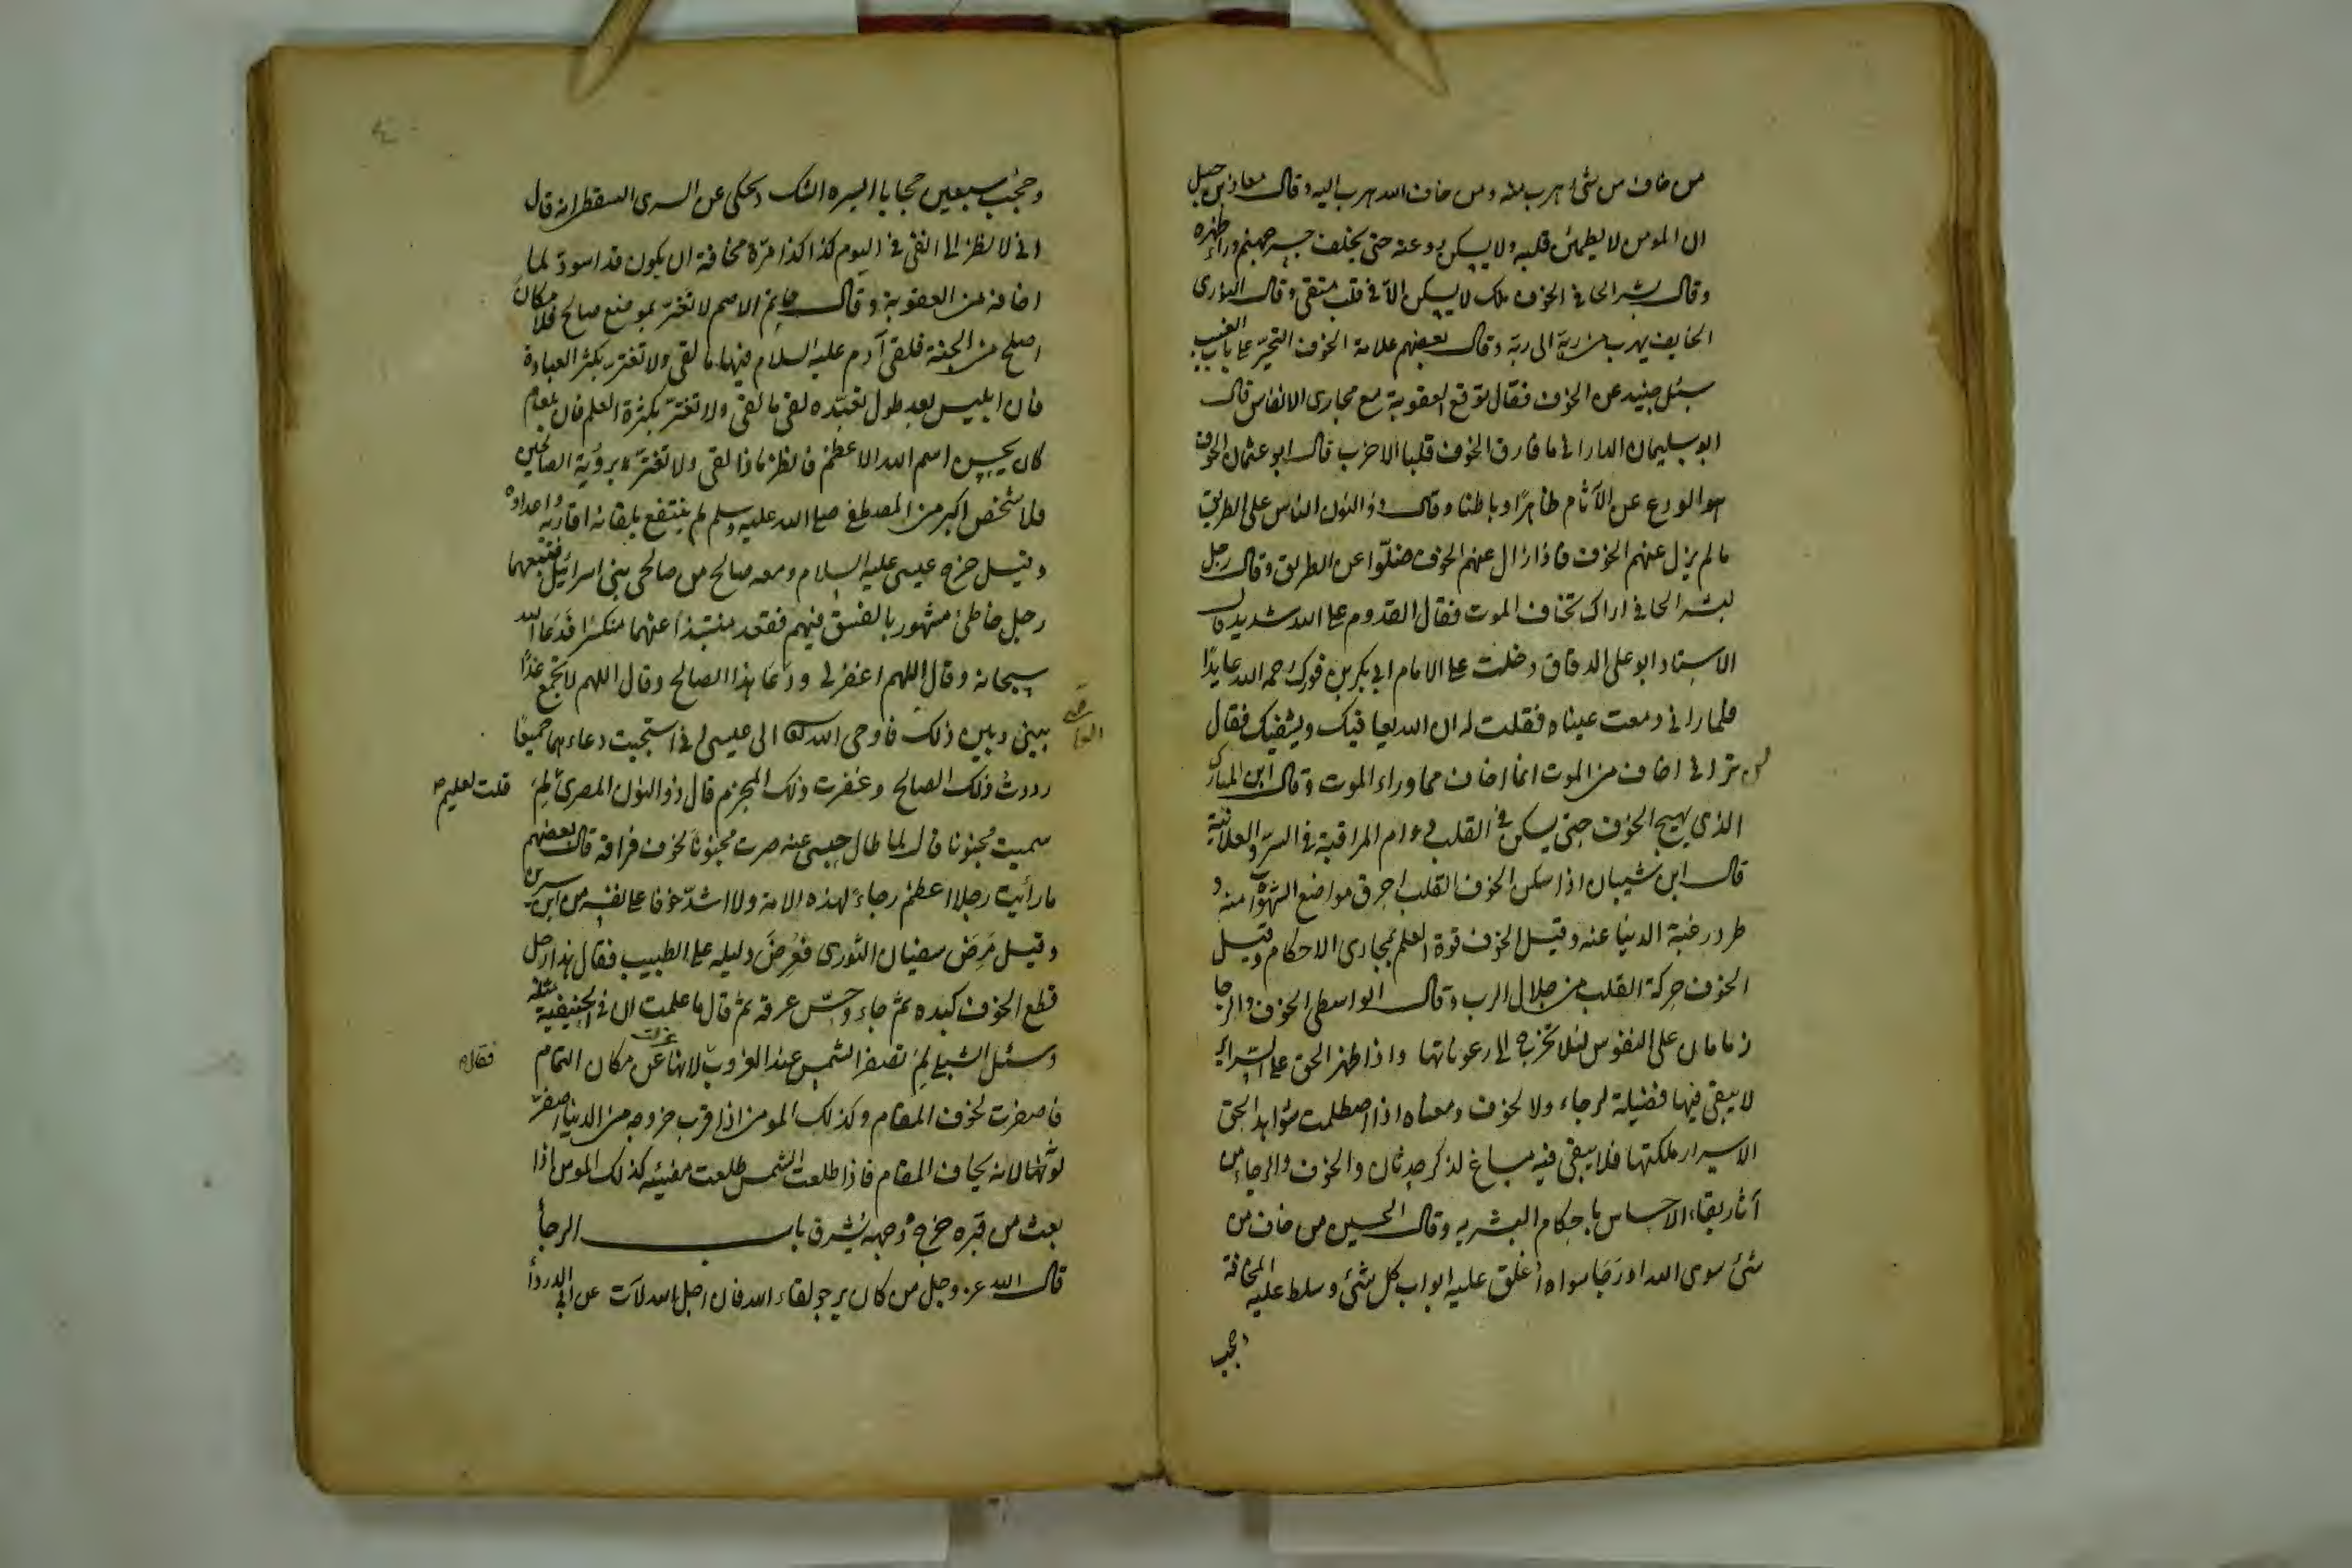 من خاف من شئ هرب منه ومن خاف الله هرب اليه وقال معاذ بن جبل
ان المومن لا يطمئن قلبه ولا يسكن روعته حتى يخلف جسر جهنم وراء ظهره
وقال بشر الحافي الخوف ملك لا يسكن الا في قلب متقى وقال النورى
الخايف يهرب من ربه الى ربه وقال بعضهم علامة الخوف التحير على باب الغيب
سئل جنيد عن الخوف فقال توقع العقوبة مع مجارى الانفاس قال
ابو سليمان الدارانى ما فارق الخوف قلبا الا خرب قال ابو عثمان الخوف
هو الورع عن الآثام ظاهرًا وباطنا وقال ذو النون الناس على الطريق
ما لم يزل عنهم الخوف فاذا زال عنهم الخوف ضلّوا عن الطريق وقال رجل
لبشر الحافي اراك تخاف الموت فقال القدوم على الله شديد قال
الاستاد ابو على الدقاق دخلت على الامام ابي بكر بن فورك رحمه الله عايدًا
فلما رانى دمعت عيناه فقلت له ان الله يعافيك ويشفيك فقال
لى ترانى اخاف من الموت انما اخاف مما وراء الموت وقال ابن المبارك
الذى يهيج الخوف حتى يسكن في القلب دوام المراقبة في السر والعلانية
قال ابن شيبان اذا سكن الخوف القلب احرق مواضع الشهوات منه و
طرد رغبة الدنيا عنه وقيل الخوف قوة العلم بمجارى الاحكام وقيل
الخوف حركة القلب من جلال الرب وقال الواسطى الخوف والرجا
زمامان على النفوس لئلا تخرج الى رعوناتها واذا ظهر الحق على السراير
لا يبقى فيها فضيلة لرجاء ولا لخوف ومعناه اذا اصطلمت شواهد الحق
الاسرار ملكتها فلا يبقى فيه مساغ لذكر حدثان والخوف والرجاء من
آثار بقاء الاحساس باحكام البشريه وقال الحسين من خاف من
شئ سوى الله او رَجَا سواه اُغلق عليه ابواب كل شئ وسلط عليه المخافة
وحجب
وحُجب سبعين حجابا ايسره الشك ويحكى عن السرى السقطى انه قال
انى لانظر الى انفى في اليوم كذا كذا مرّة مخافة ان يكون قد اسودّ لما
اخافه من العقوبة وقال حاتم الاصم لا تغترّ بموضع صالح فلا مكان
اصلح من الجنة فلقى آدم عليه السلام فيها ما لقى ولا تغتر بكثر العبادة
فان ابليس بعد طول تعبّده لقى ما لقى ولا تغترّ بكثرة العلم فان بلعام
كان يحسن اسم الله الاعظم فانظر ماذا لقى ولا تغتر برؤية الصالحين
فلا شخص اكبر من المصطفى صلى الله عليه وسلم لم ينتفع بلقائه اقاربه واعداؤه
وقيل خرج عيسى عليه السلام ومعه صالح من صالحى بنى اسرائيل فتبعهما
رجل خاطئ مشهور بالفسق فيهم فقعد منتبذا عنهما منكسرًا فدَعَا الله
سبحانه وقال اللهم اغفر لى ودَعَا هذا الصالح وقال اللهم لا تجمع غدًا
بينى وبين ذلك فاوحى الله الى عيسى انى استجبت دعاءهما جميعًا
رددت ذلك الصالح وغفرت ذلك المجرم قال ذو النون المصرىّ لِمَ
قلت لعليم
سميت مجنونا قال لما طال حبسى عنه صرت مجنونًا لخوف فراقه قال بعضهم
ما رأيت رجلا اعظم رجاءً لهذه الامة ولا اشدّ خوفا على نفسه من ابن سيرين
وقيل مَرِضَ سفيان الثورى فعُرِضَ دليله على الطبيب فقال هذا رجل
قطع الخوف كبده ثم جاء وحبسّ عرقه ثم قال ما علمت ان في الحنيفية مثله
وسئل الشبلى لِمَ تصفر الشمس عند الغروب لانها عزلت عن مكان التمام
فقال
فاصفرت لخوف المقام وكذلك المومن اذا قرب خروجه من الدنيا اصفرّ
لونه لانه يخاف المقام فاذا طلعت الشمس طلعت مضيئه كذلك المومن اذا
بعث من قبره خرج ووجهه يُشرق باب الرجأ
قال الله عز وجل من كان يرجو لقاء الله فان اجل الله لآت عن ابى الدردأ